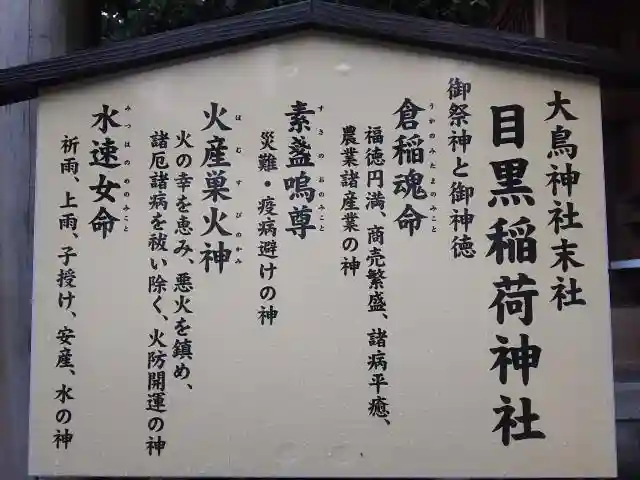 大鳥神社末社
目黒稲荷神社
御祭神と御神徳
倉稲魂命
うかのみたまのみこと
福徳円満、商売繁盛、諸病平癒、
農業諸産業の神
素盞嗚尊
すさのおのみこと
災難・疫病避けの神
火産巣火神
ほむすびのかみ
火の幸を恵み、悪火を鎮め、
諸厄諸病を祓い除く、火防開運の神
水速女命
みつはのめのみこと
祈雨、止雨、子授け、安産、水の神